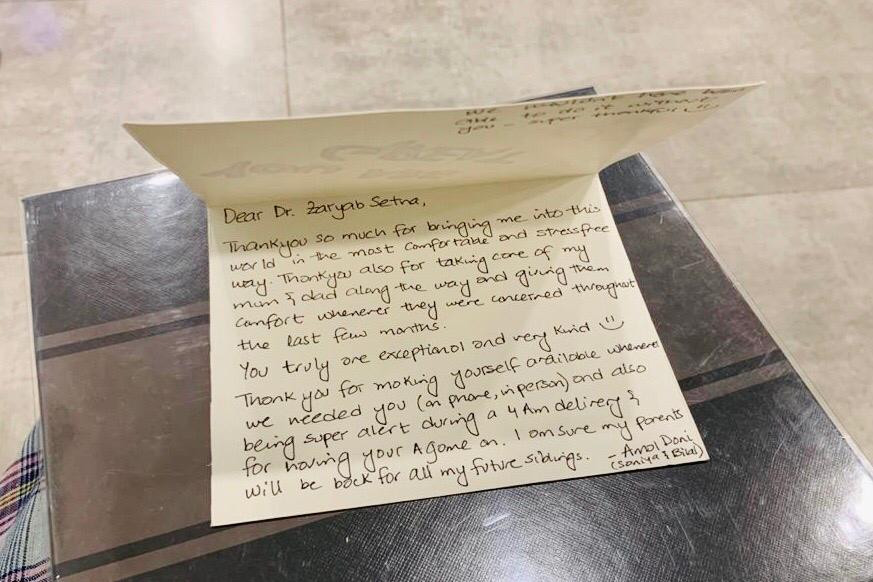 we wouldn't have been
able to do it without
you - super thankful
Dear Dr. Zaryab Setna,
Thankyou so much for bringing me into this
world in the most comfortable and stressfree
way. Thankyou also for taking care of my
mum & dad along the way and giving them
comfort whenever they were concerned throughout
the last few months.
You truly are exceptional and very kind
Thank you for making yourself available whenever
we needed you (on phone, in person) and also
being super alert during a 4 Am delivery &
for having your A game on. I am sure my parents
will be back for all my future siblings. - Amal Dani
(Saniya & Bilal)